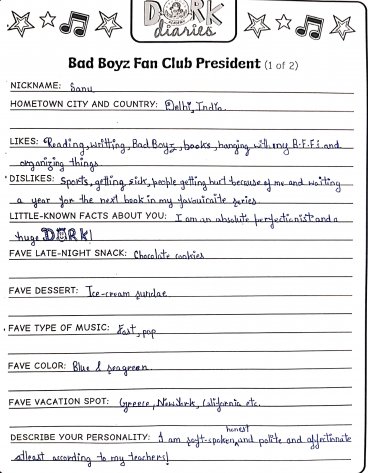 DORK
diaries
Bad Boyz Fan Club President (1 of 2)
NICKNAME: Sanu
HOMETOWN CITY AND COUNTRY: Delhi, India
LIKES: Reading, writting, Bad Boyz, books, hanging with my B.F.F.i and
organizing things.
DISLIKES: Sports, getting sick, people getting hurt because of me and waiting
a year for the next book in my favouraite series
LITTLE-KNOWN FACTS ABOUT YOU: I am an absolute perfectionist and a
huge DORK!
FAVE LATE-NIGHT SNACK: Chocolate cookies
FAVE DESSERT: Ice-cream sundae
FAVE TYPE OF MUSIC: Fast, pop
FAVE COLOR: Blue & seagreen
FAVE VACATION SPOT: Greece, NewYork, California etc.
DESCRIBE YOUR PERSONALITY: I am soft-spoken, honest and polite and affectionate
atleast according to my teachers!